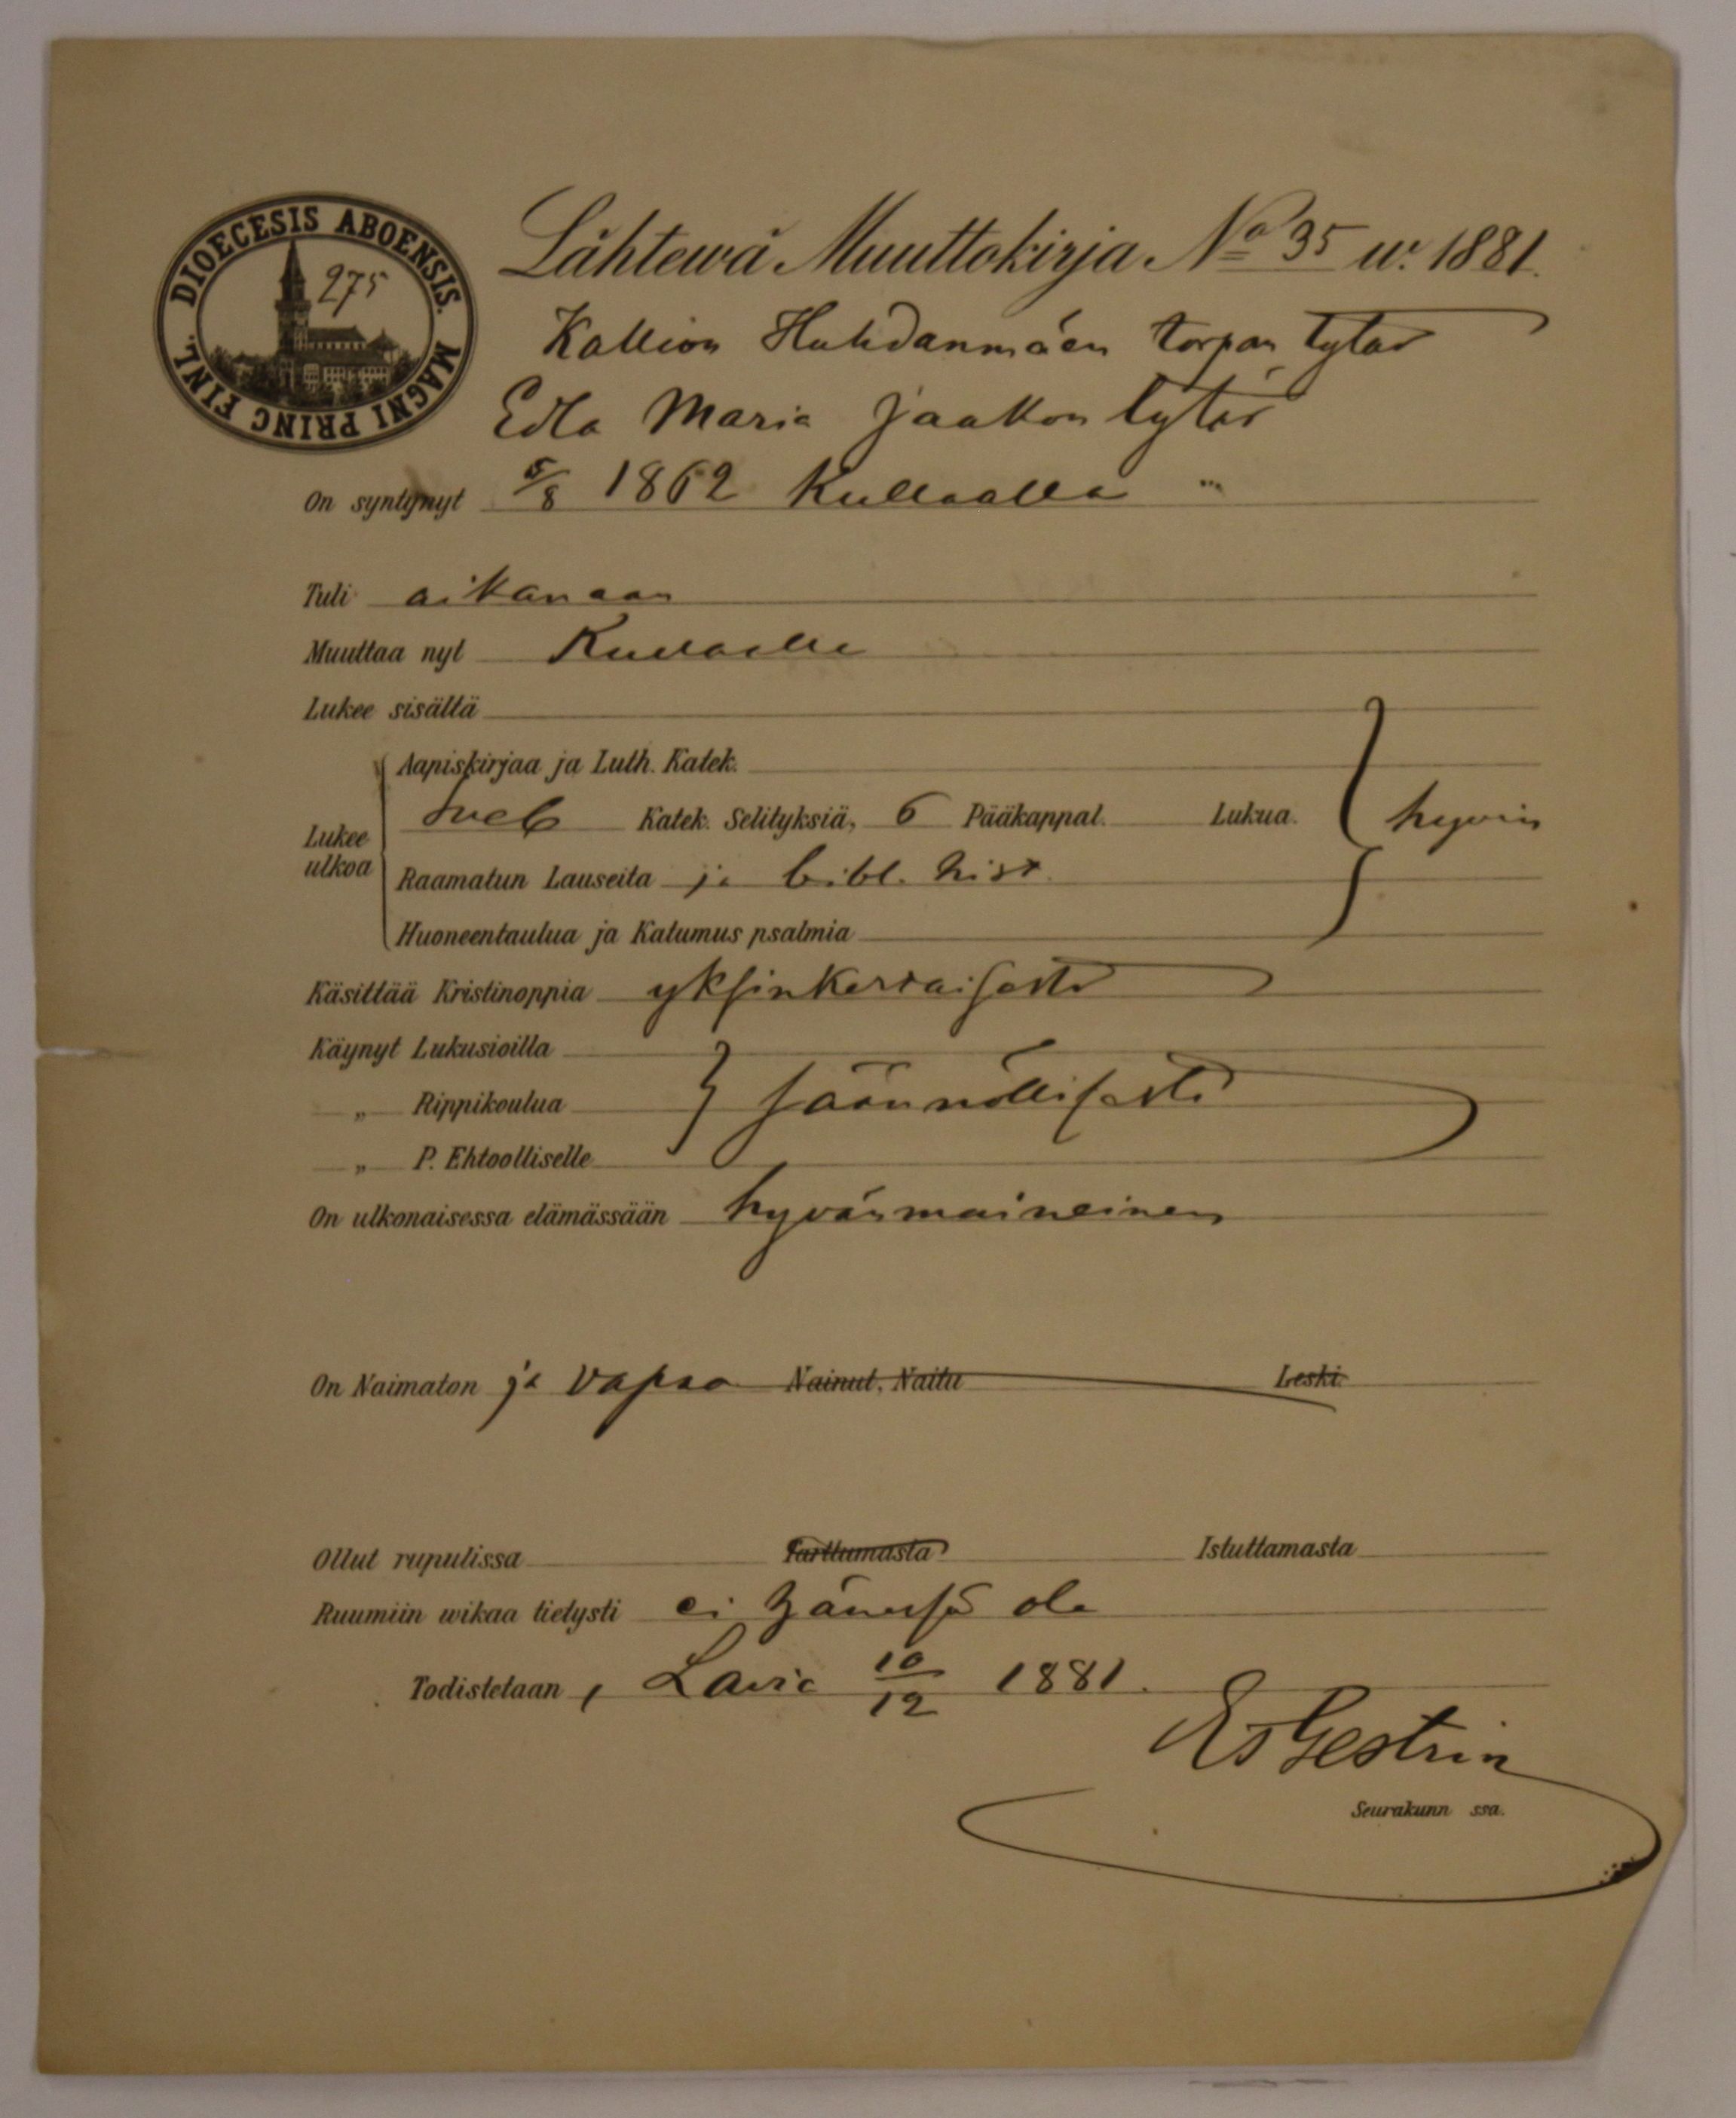 DIOECESIS ABOENSIS. MAGNI PRINC FINL.
275
Lähtewä Muuttokirja No 35 w. 1881.
Kallion Huhdanmäen torpan tytär
Edla Maria Jaakon tytär
On syntynyt 5/8 1862 Kullaalla "
Tuli aikanaan
Muuttaa nyt Kullaalle
Lukee sisältä
Lukee ulkoa
Aapiskirjaa ja Luth. Katek.
Sveb Katek. Selityksiä, 6 Pääkappal. Lukua. hyvin
Raamatun Lauseita ja bibl. hist.
Huoneentaulua ja Katumus psalmia
Käsittää Kristinoppia yksinkertaisesti
Käynyt Lukusioilla
„ Rippikoulua säännöllisesti
„ P. Ehtoolliselle
On ulkonaisessa elämässään hyvänmaineinen
On Naimaton ja vapaa Nainut, Naitu Leski.
Ollut rupulissa Tarttumasta Istuttamasta
Ruumiin wikaa tietysti ei hänessä ole
Todistetaan, Lavia 10/12 1881.
Es Gestrin
Seurakunn ssa.